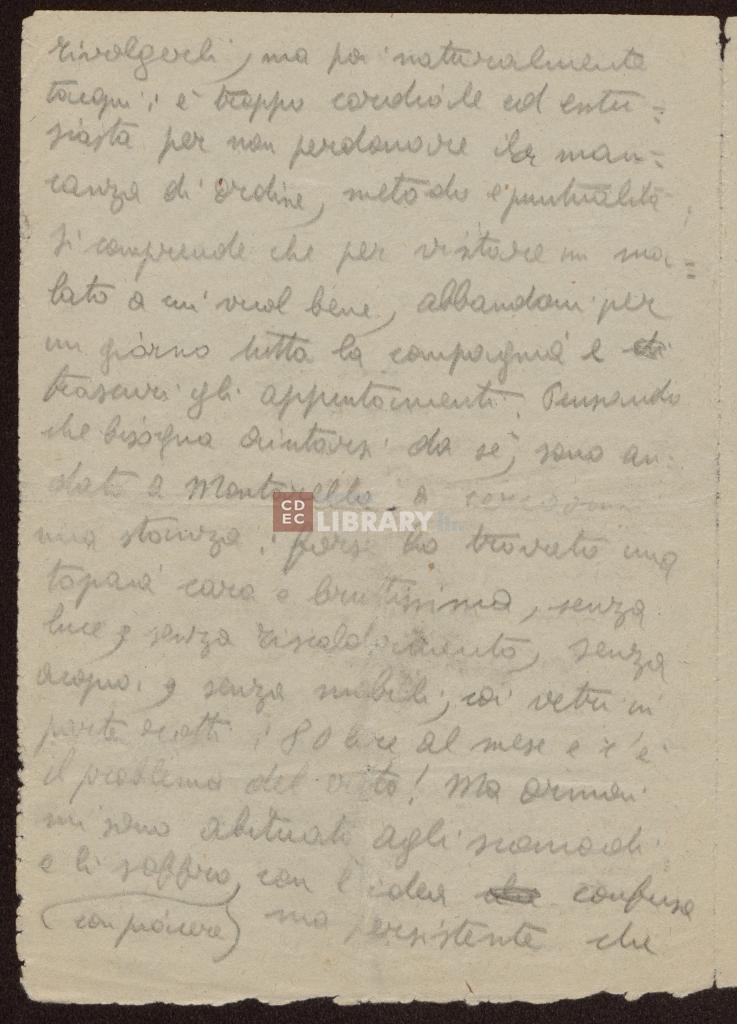 rivolgerti, ma poi naturalmente
tacqui; è troppo cordiale ed entu=
siasta per non perdonare la man=
canza di ordine, metodo e puntualità,
si comprende che per visitare un ma=
lato a cui vuol bene, abbandoni per
un giorno tutta la compagnia e
trascuri gli appuntamenti. Pensando
che bisogna aiutarsi da sé, sono an=
dato a a
CDEC LIBRARY
una stanza; forse ho trovato una
topaia cara e bruttissima, senza
luce, senza riscaldamento, senza
acqua, e senza mobili, coi vetri in
parte rotti; 80 lire al mese e c'è
il problema del vitto! Ma ormai
mi sono abituato agli scomodi
e li soffro, con l'idea confusa
(con piacere) ma persistente che